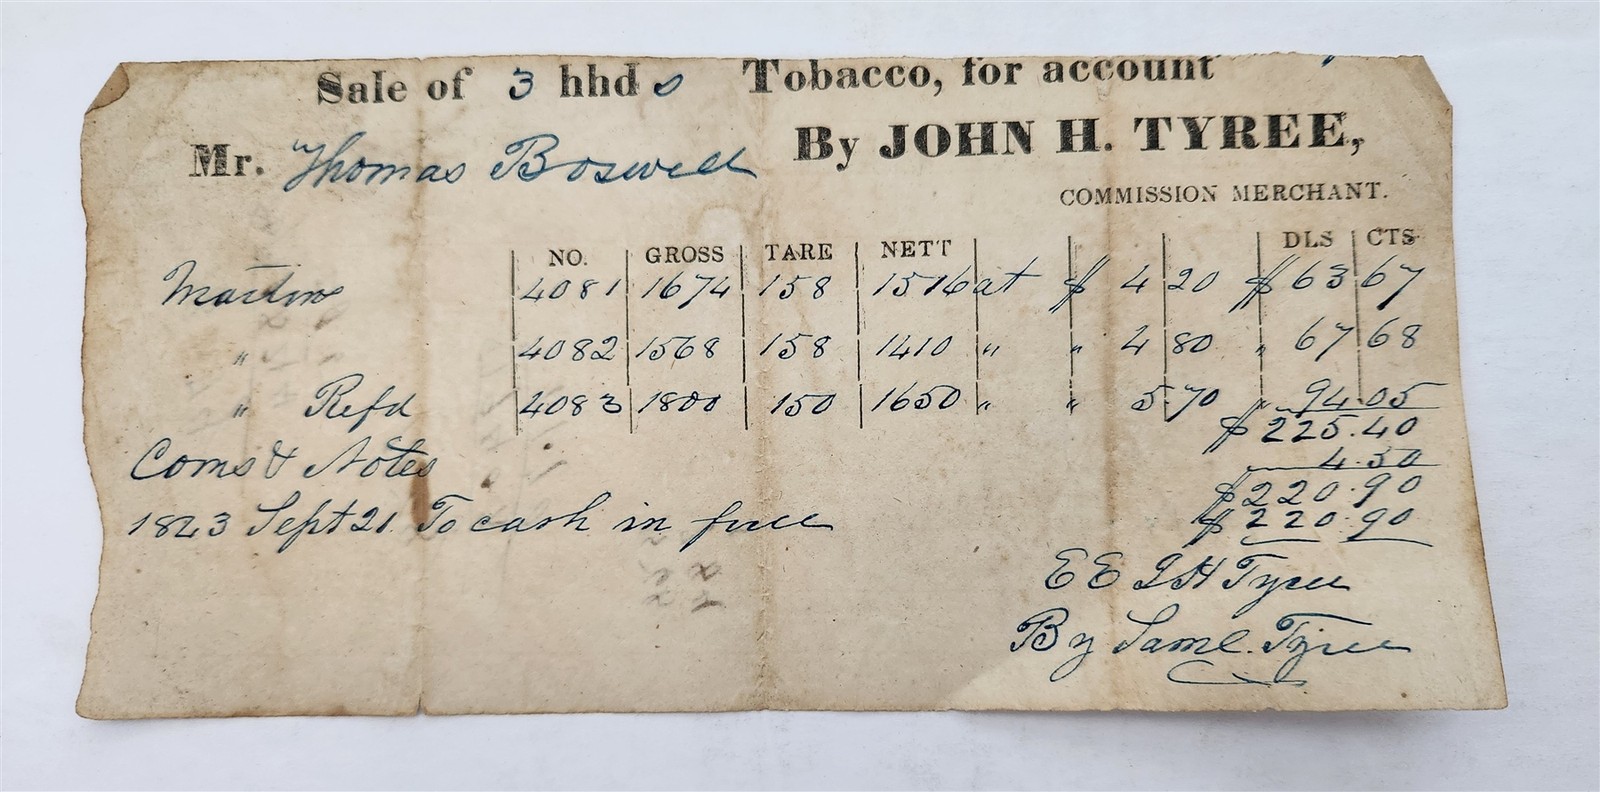 Sale of 3 hhds Tobacco, for account
Mr. Thomas Boswell By JOHN H. TYREE,
COMMISSION MERCHANT.
NO. GROSS TARE NETT DLS CTS
Martins 4081 1674 158 1516 at $ 4 20 $ 63 67
" 4082 1568 158 1410 " " 4 80 " 67 68
" Refd 4083 1800 150 1650 " " 5.70 " 94.05
$ 225.40
Coms & Notes 4.50
$ 220.90
1843 Sept 21. To cash in full $ 220.90
E E J H Tyree
By Saml. Tyree